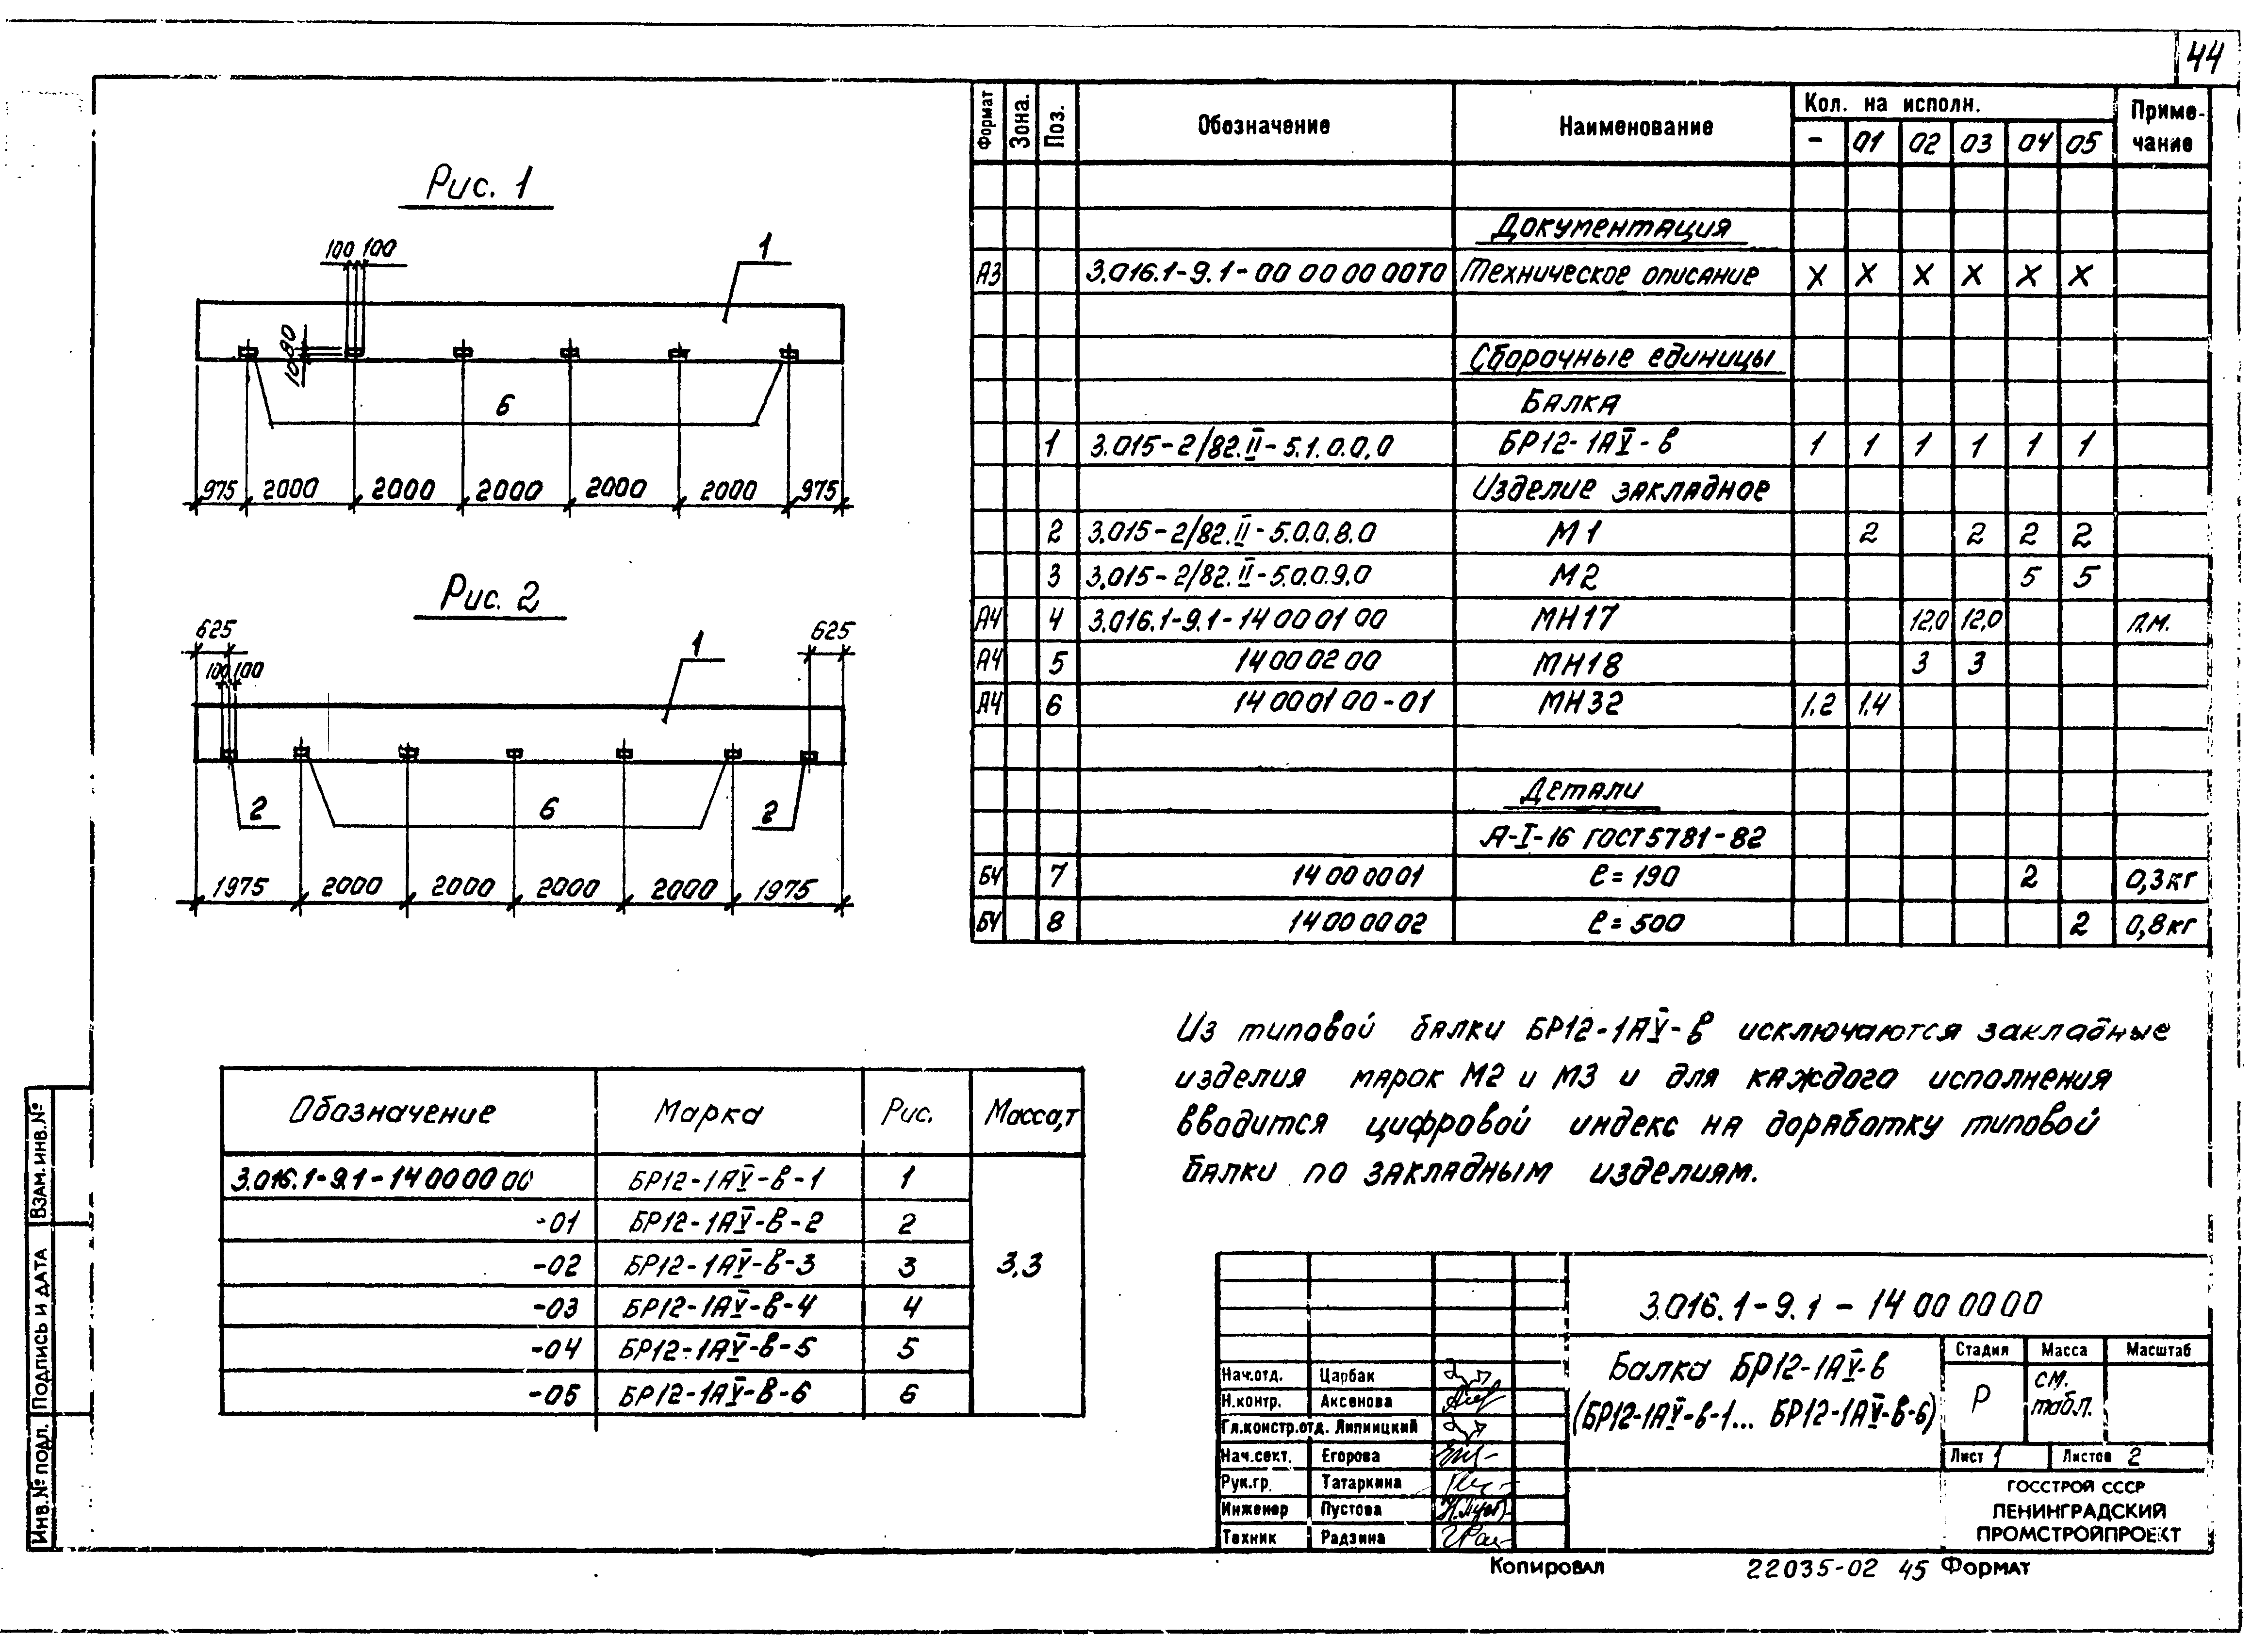 44
Рис. 1
100 100
1
80
10
6
975 2000 2000 2000 2000 2000 975
Рис. 2
625 625
100 100
1
2 6 2
1975 2000 2000 2000 2000 1975
Формат Зона. Поз. Обозначение Наименование Кол. на исполн. Приме-
чание
- 01 02 03 04 05
Документация
А3 3.016.1-9.1-00 00 00 00ТО Техническое описание X X X X X X
Сборочные единицы
Балка
1 3.015-2/82.II-5.1.0.0.0 БР12-1АV-в 1 1 1 1 1 1
Изделие закладное
2 3.015-2/82.II-5.0.0.8.0 М1 2 2 2 2
3 3.015-2/82.II-5.0.0.9.0 М2 5 5
А4 4 3.016.1-9.1-14 00 01 00 МН17 12,0 12,0 п.м.
А4 5 14 00 02 00 МН18 3 3
А4 6 14 00 01 00-01 МН32 1.2 1.4
Детали
А-I-16 ГОСТ 5781-82
БЧ 7 14 00 00 01 ℓ=190 2 0,3кг
БЧ 8 14 00 00 02 ℓ=500 2 0,8кг
Из типовой балки БР12-1АV-в исключаются закладные
изделия марок М2 и М3 и для каждого исполнения
вводится цифровой индекс на доработку типовой
балки по закладным изделиям.
Обозначение Марка Рис. Масса,т
3.016.1-9.1-14 00 00 00 БР12-1АV-в-1 1
-01 БР12-1АV-в-2 2
-02 БР12-1АV-в-3 3 3,3
-03 БР12-1АV-в-4 4
-04 БР12-1АV-в-5 5
-05 БР12-1АV-в-6 6
Взам.инв.№
Подпись и дата
Инв.№ подл.
3.016.1-9.1-14 00 00 00
Балка БР12-1АV-в
(БР12-1АV-в-1... БР12-1АV-в-6)
Стадия Масса Масштаб
Р см.
табл.
Лист 1 Листов 2
ГОССТРОЙ СССР
ЛЕНИНГРАДСКИЙ
ПРОМСТРОЙПРОЕКТ
Нач.отд. Царбак
Н.контр. Аксенова
Гл.констр.отд. Липницкий
Нач.сект. Егорова
Рук.гр. Татаркина
Инженер Пустова
Техник Радзина
Копировал 22035-02 45 Формат